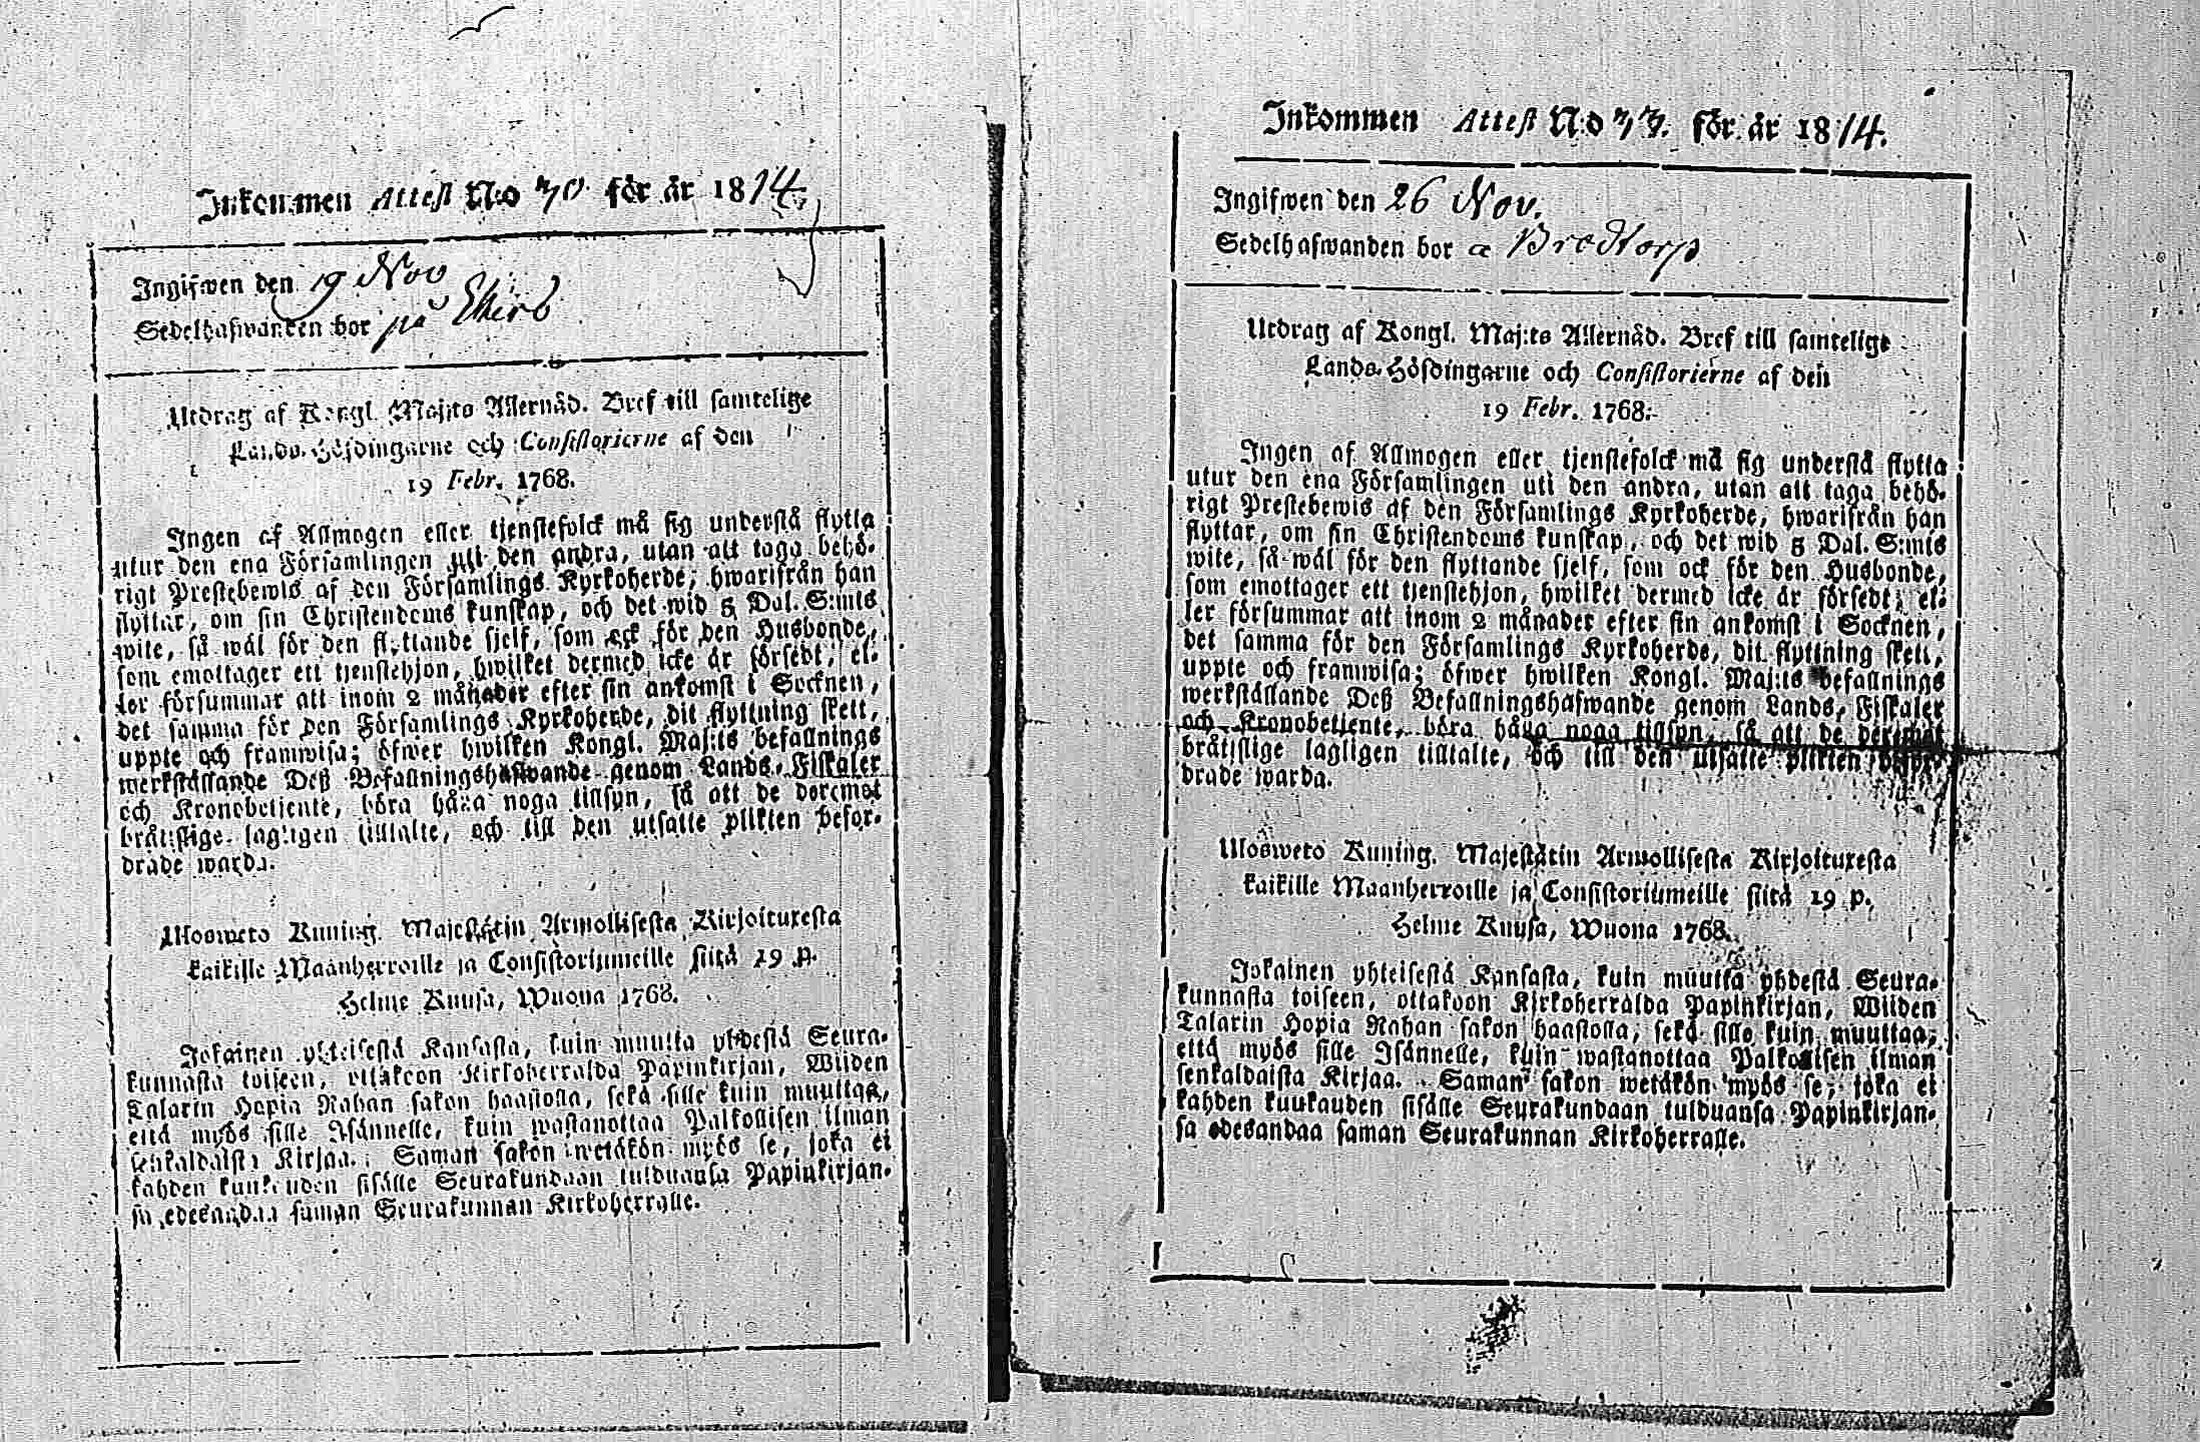 Inkommen Attest N:o 70 för år 1814.
Ingifwen den 19 Nov
Sedelhafwanden bor på
Utdrag af Kongl. Maj:ts Allernåd. Bref till samtelige
Lands-Höfdingarne och Consistorierne af den
19 Febr. 1768.
Ingen af Allmogen eller tjenstefolck må sig understå flytta
utur den ena Församlingen uti den andra, utan att taga behö-
rigt Prestebewis af den Församlings Kyrkoherde, hwarifrån han
flyttar, om sin Christendoms kunskap, och det wid 5 Dal. S:mts
wite, så wäl för den flyttande sjelf, som ock för den Husbonde,
som emottager ett tjenstehjon, hwilket dermed icke är försedt, el-
ler försummar att inom 2 månader efter sin ankomst i Socknen,
det samma för den Församlings Kyrkoherde, dit flyttning skett,
uppte och framwisa; öfwer hwilken Kongl. Maj:ts befallnings
werkställande Deß Befallningshafwande genom Lands-Fiskaler
och Kronobetjente, böra hafwa noga tillsyn, så att de deremot
bråtzlige lagligen tilltalte, och till den utsatte plikten befor-
drade warda.
Ulosweto Kuning. Majestätin Armollisesta Kirjoituxesta
kaikille Maanherroille ja Consistoriumeille siitä 19 p.
Helme Kuusa, Wuona 1768.
Jokainen yhteisestä Kansasta, kuin muutta yhdestä Seura-
kunnasta toiseen, ottakoon Kirkoherralda Papinkirjan, Wiiden
Talarin Hopia Rahan sakon haastolla, sekä sille kuin muuttaa,
että myös sille Isännelle, kuin wastanottaa Palkollisen ilman
senkaldaista Kirjaa. Saman sakon wetäkön myös se, joka ei
kahden kuukauden sisälle Seurakundaan tulduansa Papinkirjan-
sa edesandaa saman Seurakunnan Kirkoherralle.
Inkommen Attest N:o 73. för år 1814.
Ingifwen den 26 Nov.
Sedelhafwanden bor a Brodtorp
Utdrag af Kongl. Maj:ts Allernåd. Bref till samtelige
Lands-Höfdingarne och Consistorierne af den
19 Febr. 1768.
Ingen af Allmogen eller tjenstefolck må sig understå flytta
utur den ena Församlingen uti den andra, utan att taga behö-
rigt Prestebewis af den Församlings Kyrkoherde, hwarifrån han
flyttar, om sin Christendoms kunskap, och det wid 5 Dal. S:mts
wite, så wäl för den flyttande sjelf, som ock för den Husbonde,
som emottager ett tjenstehjon, hwilket dermed icke är försedt, el-
ler försummar att inom 2 månader efter sin ankomst i Socknen,
det samma för den Församlings Kyrkoherde, dit flyttning skett,
uppte och framwisa; öfwer hwilken Kongl. Maj:ts befallnings
werkställande Deß Befallningshafwande genom Lands-Fiskaler
och Kronobetjente, böra hafwa noga tillsyn, så att de deremot
bråtzlige lagligen tilltalte, och till den utsatte plikten befor-
drade warda.
Ulosweto Kuning. Majestätin Armollisesta Kirjoituxesta
kaikille Maanherroille ja Consistoriumeille siitä 19 p.
Helme Kuusa, Wuona 1768.
Jokainen yhteisestä Kansasta, kuin muutta yhdestä Seura-
kunnasta toiseen, ottakoon Kirkoherralda Papinkirjan, Wiiden
Talarin Hopia Rahan sakon haastolla, sekä sille kuin muuttaa,
että myös sille Isännelle, kuin wastanottaa Palkollisen ilman
senkaldaista Kirjaa. Saman sakon wetäkön myös se, joka ei
kahden kuukauden sisälle Seurakundaan tulduansa Papinkirjan-
sa edesandaa saman Seurakunnan Kirkoherralle.